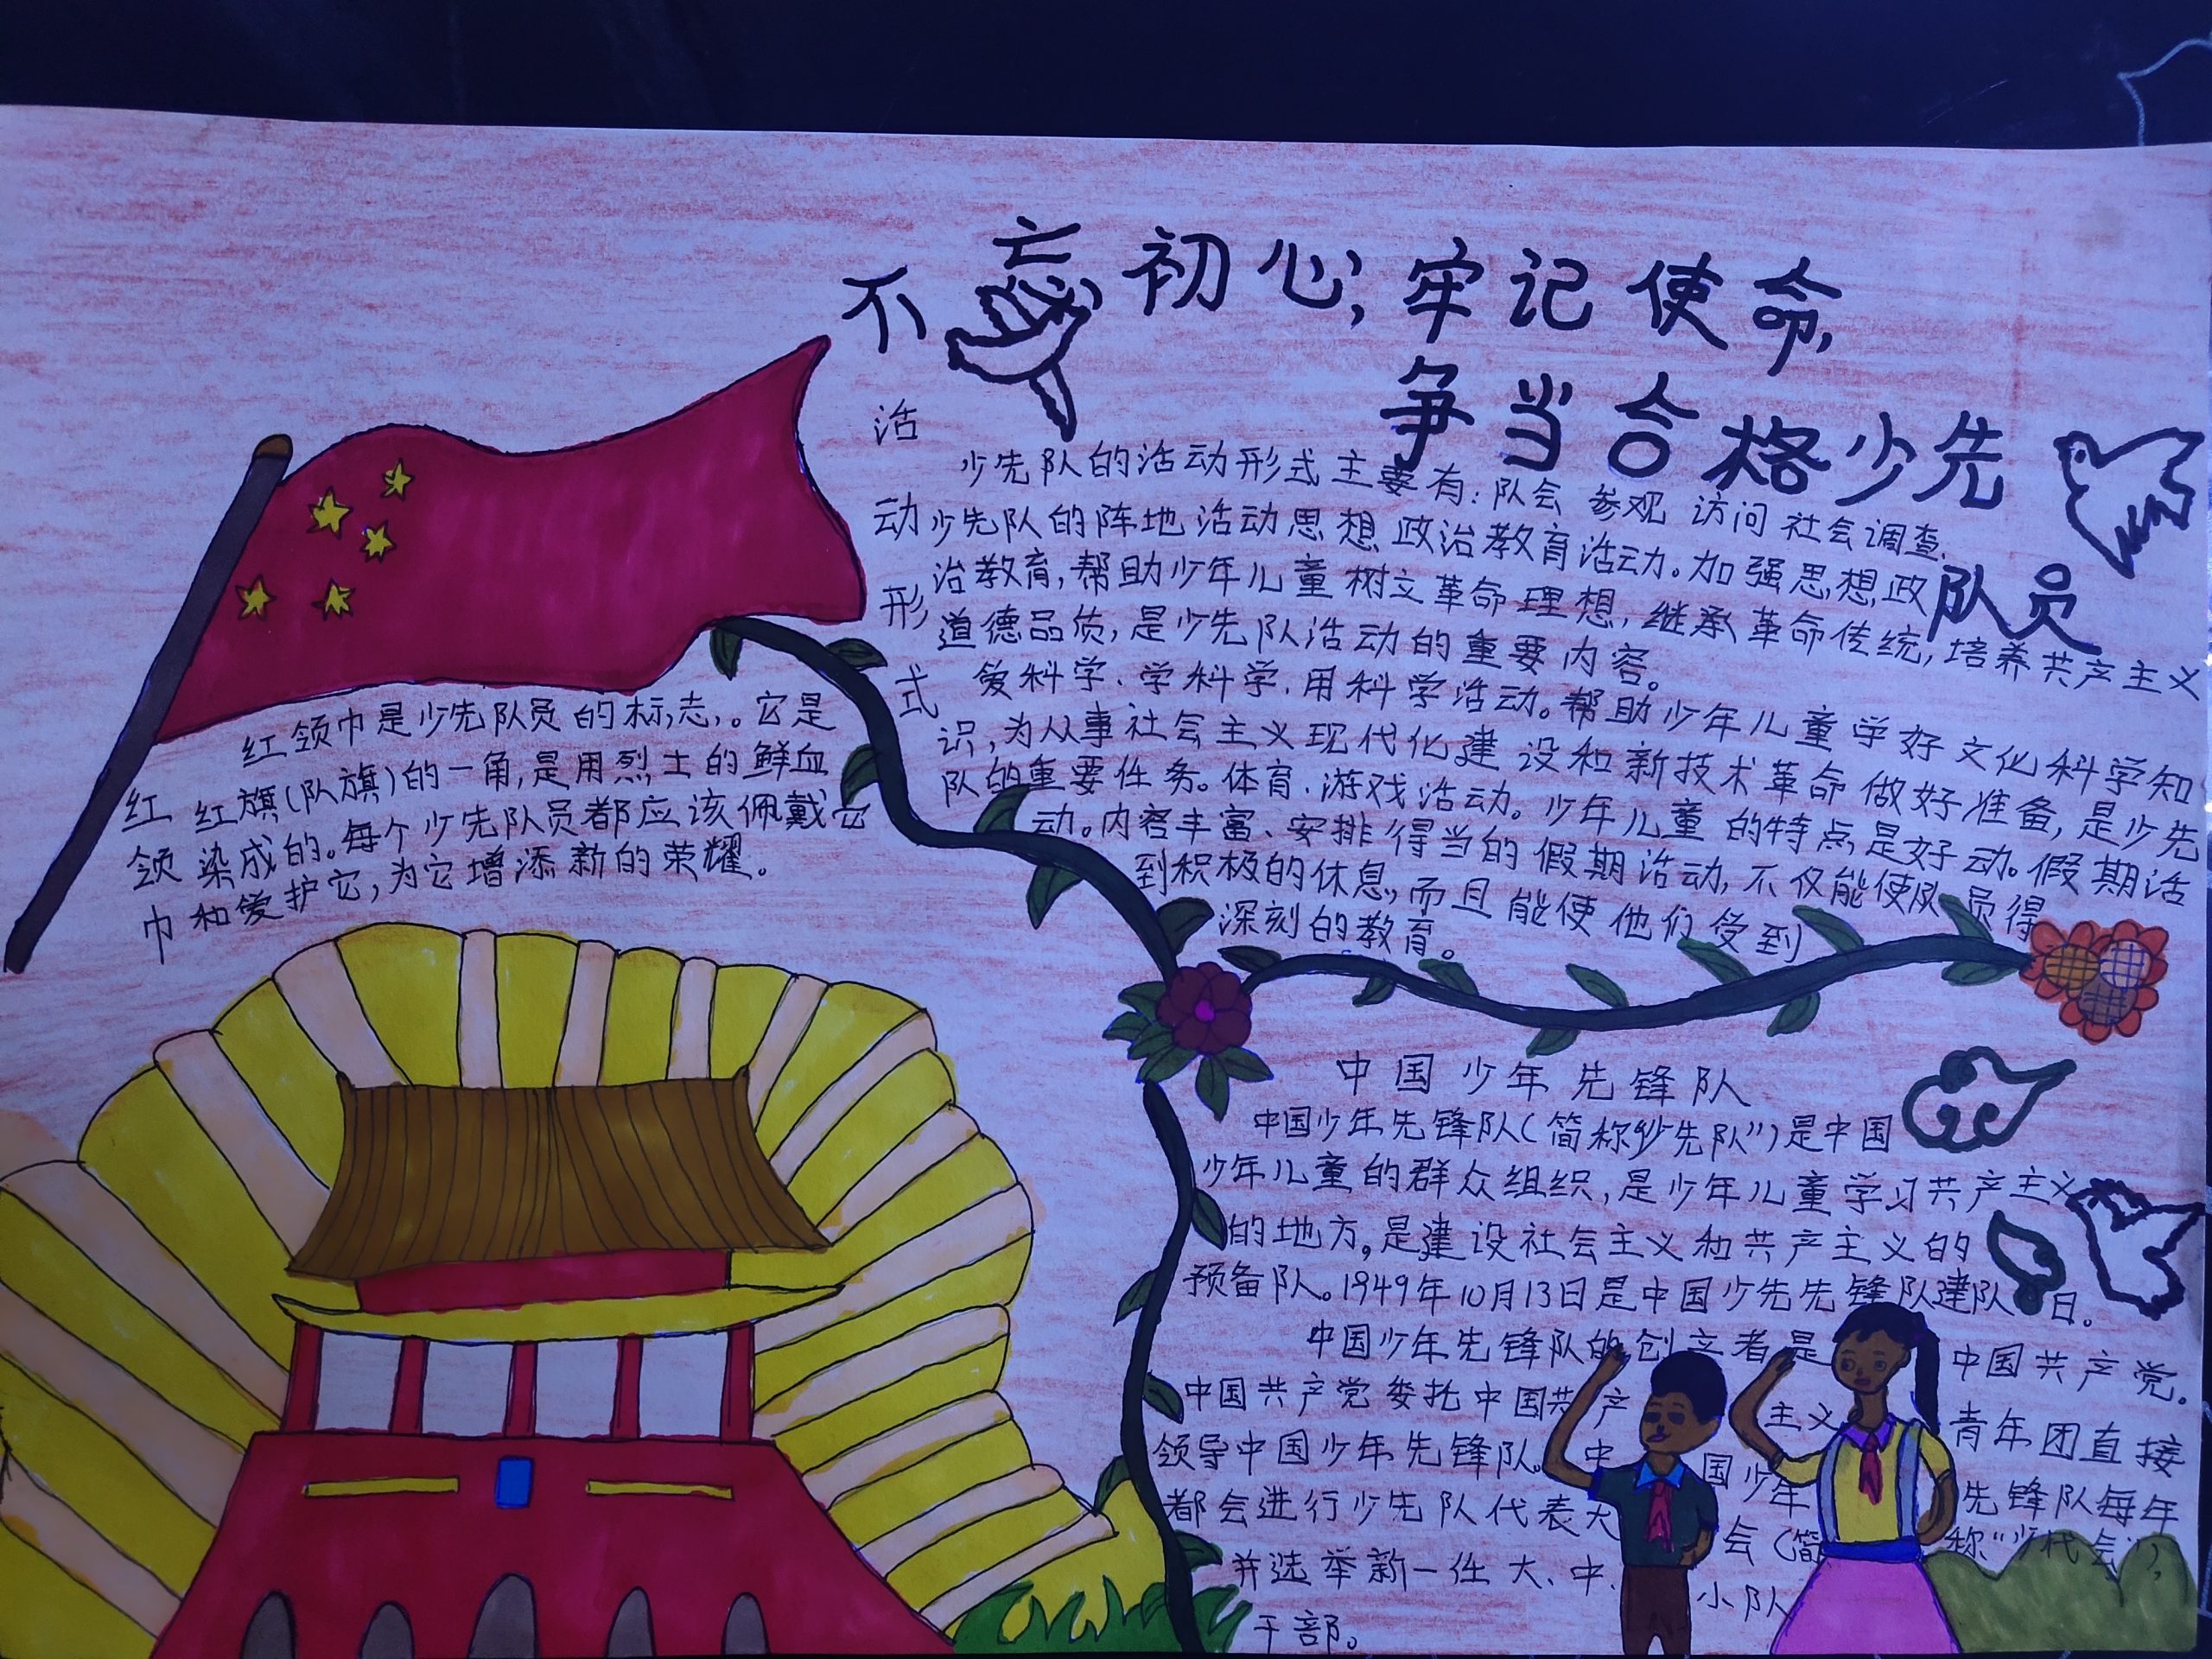 不忘初心,牢记使命,
争当合格少先
队员
活动形式
少先队的活动形式主要有:队会 参观 访问 社会调查、
少先队的阵地活动思想政治教育活动。加强思想政
治教育,帮助少年儿童树立革命理想,继承革命传统,培养共产主义
道德品质,是少先队活动的重要内容。
爱科学、学科学、用科学活动。帮助少年儿童学好文化科学知
识,为从事社会主义现代化建设和新技术革命做好准备,是少先
队的重要任务。体育、游戏活动。少年儿童的特点是好动。假期活
动。内容丰富、安排得当的假期活动,不仅能使队员得
到积极的休息,而且能使他们受到
深刻的教育。
红领巾
红领巾是少先队员的标志,。它是
红旗(队旗)的一角,是用烈士的鲜血
染成的。每个少先队员都应该佩戴它
和爱护它,为它增添新的荣耀。
中国少年先锋队
中国少年先锋队(简称“少先队”)是中国
少年儿童的群众组织,是少年儿童学习共产主义
的地方。是建设社会主义和共产主义的
预备队。1949年10月13日是中国少先先锋队建队日。
中国少年先锋队的创产者是中国共产党。
中国共产党委托中国共产主义青年团直接
领导中国少年先锋队。中国少年先锋队每年
都会进行少先队代表大会(简称“少代会”),
并选举新一任大、中、小队
干部。